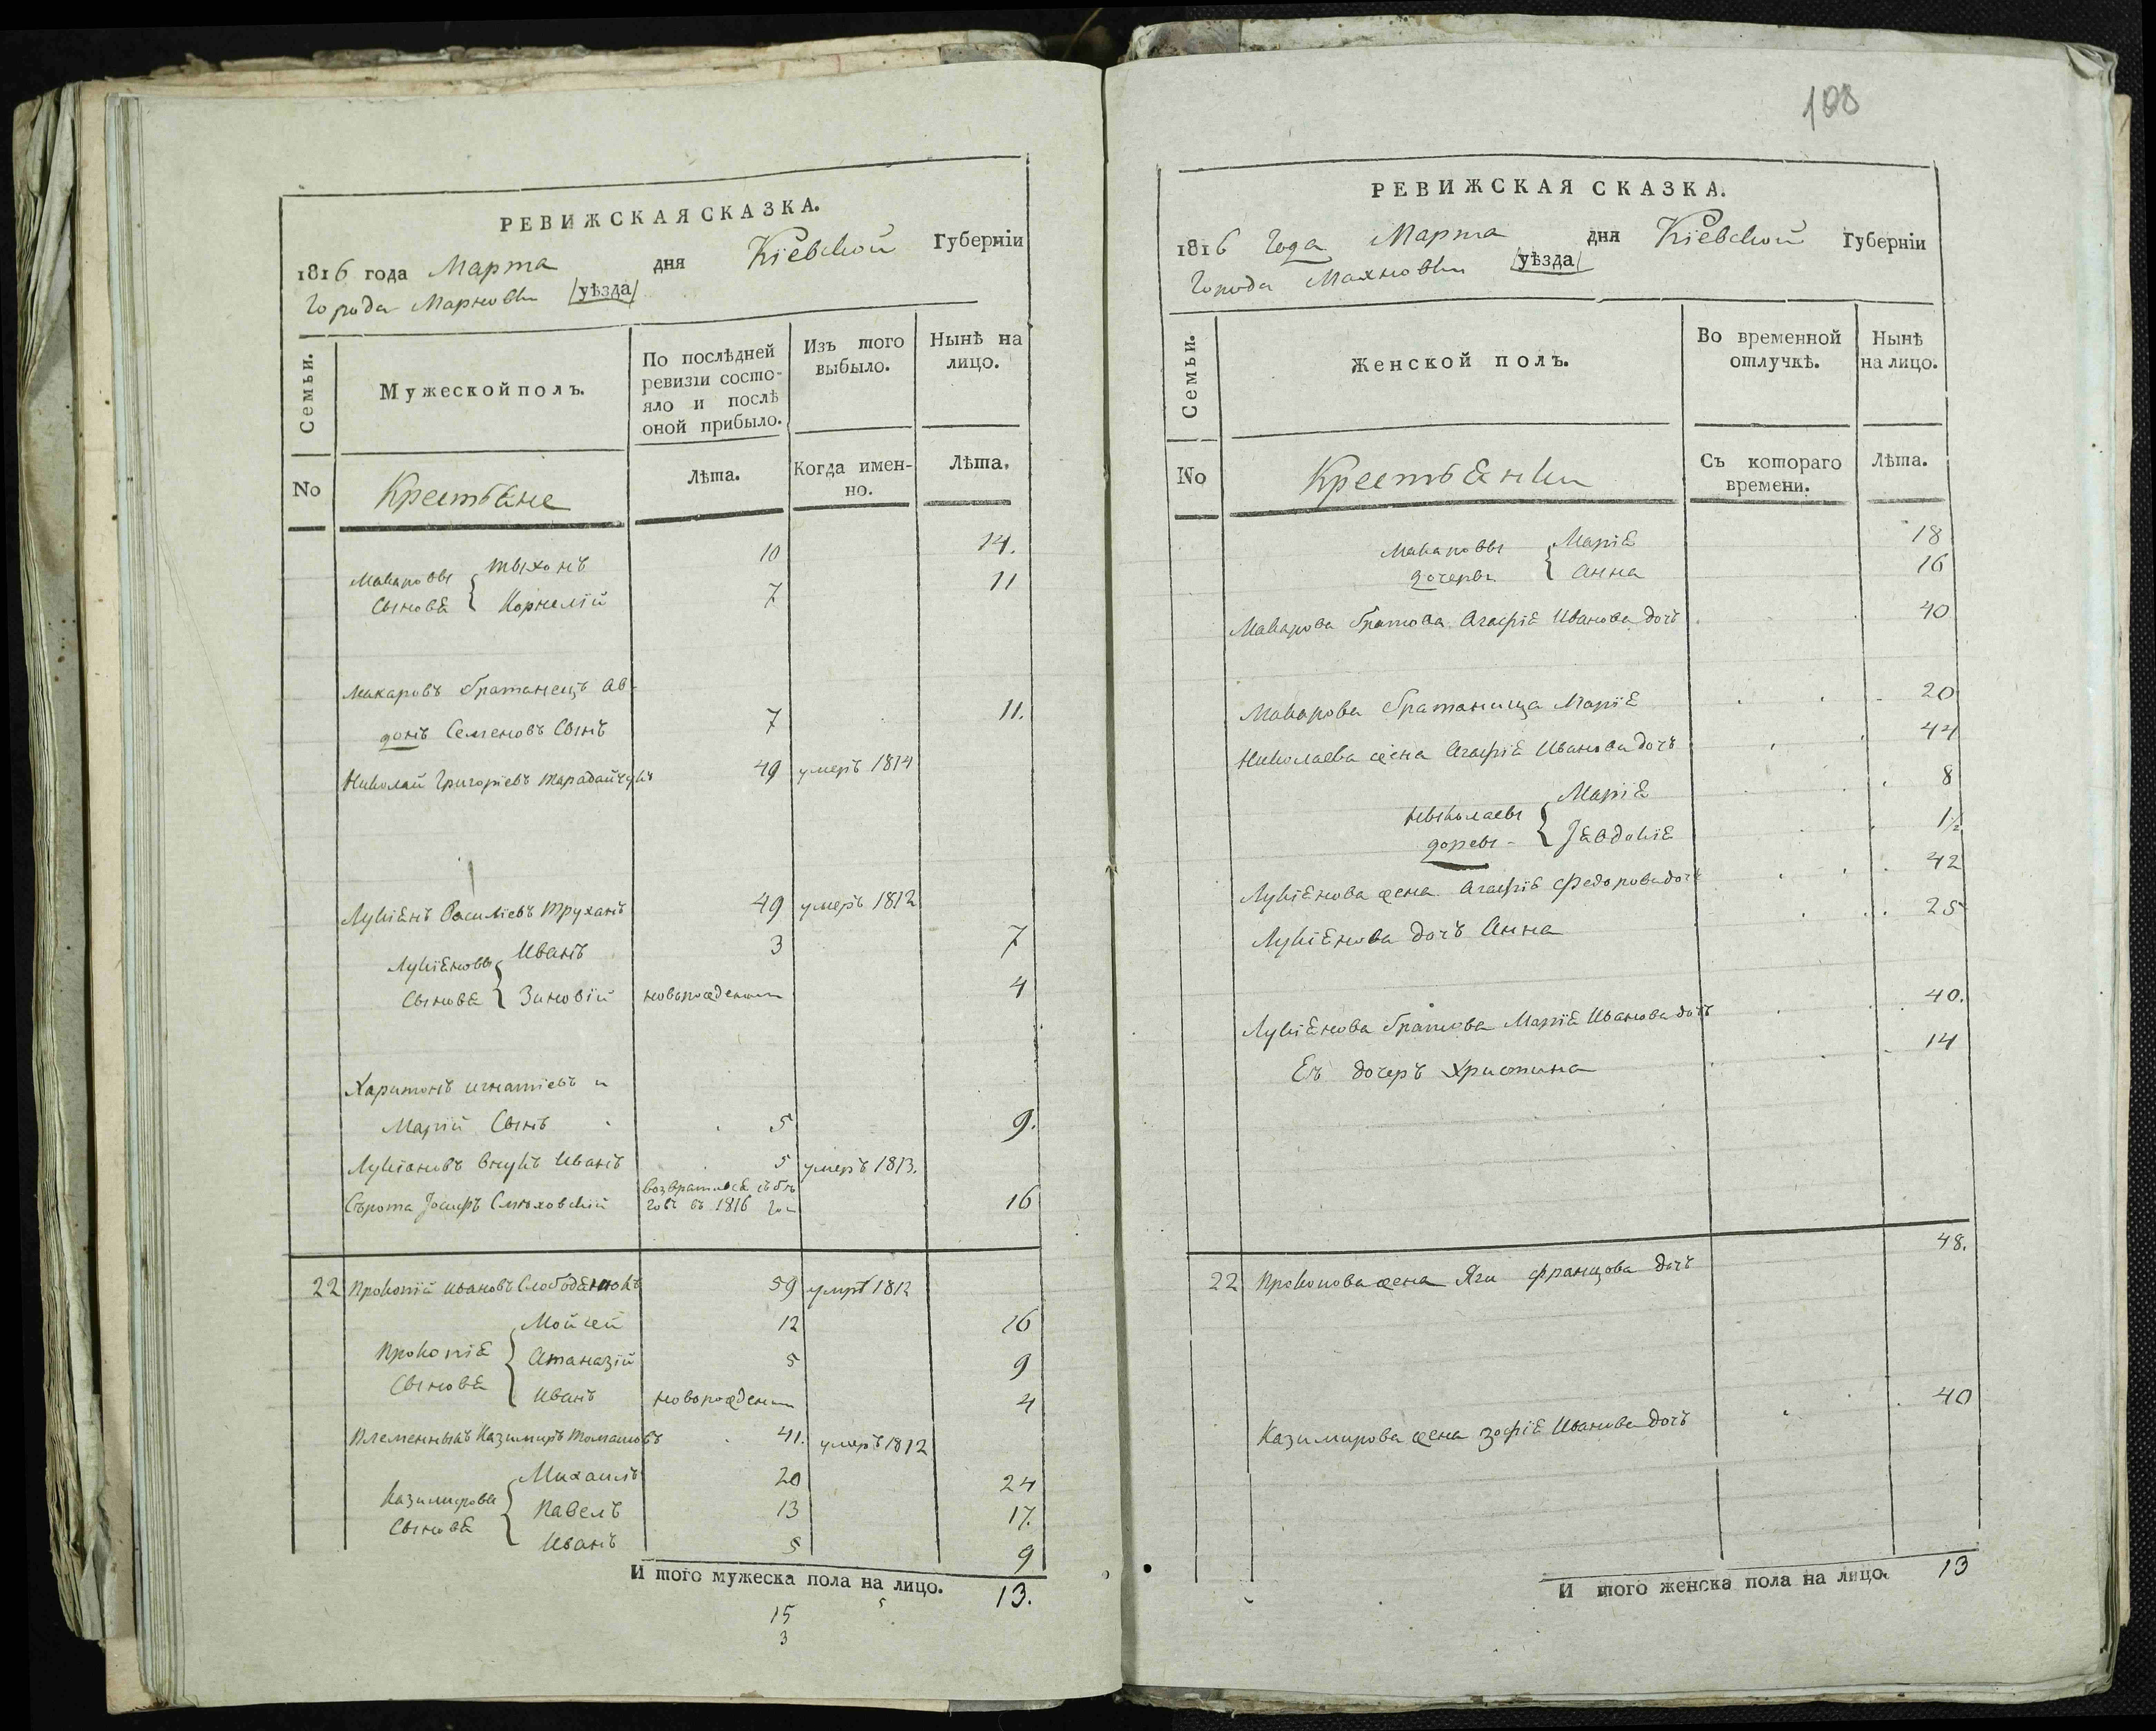 РЕВИЖСКАЯ СКАЗКА.
1816 года Марта дня Кіевской Губерніи
Города Махновки /уѣзда/
Семьи.
Мужеской полъ.
По послѣдней ревизіи состо-
яло и послѣ
оной прибыло.
Изъ того
выбыло.
Нынѣ на
лицо.
No
Крестьяне
Лѣта.
Когда имен-
но.
Лѣта.
Макаровы сыновя { Тыхонъ 10 14.
Корнелій 7 11
Макаровъ братанецъ Ав-
донъ Семеновъ Сынъ 7 11.
Николай Григоріевъ Тарадайчукъ 49 умеръ 1814
Лукіянъ Василіевъ Труханъ 49 умеръ 1812
Лукіяновы Сыновя { Иванъ 3 7
Зиновій новорожденный 4
Харитонъ Игнатіевъ и
Марій Сынъ 5 9.
Лукіановъ внукъ Иванъ 5 умеръ 1813.
Сърота Іосифъ возвратився съ бѣ-
говъ въ 1816 16
22 Прокопій Ивановъ Слободянюкъ 59 умръ 1812
Прокопія Сыновя { Мойсей 12 16
Атаназій 5 9
Иванъ новорожденны 4
Племенныкъ Казимиръ Томашовъ 41. умеръ 1812
Казимировы Сыновя { Михаилъ 20 24
Павелъ 13 17.
Иванъ 5 9
И того мужеска пола на лицо. 13.
15
3
108
РЕВИЖСКАЯ СКАЗКА.
1816 Года Марта дня Кіевской Губерніи
Города Махновки /уѣзда/
Семьи.
Женской полъ.
Во временной
отлучкѣ.
Нынѣ
на лицо.
No
Крестьянки
Съ котораго
времени.
Лѣта.
Макаровы дочеры { Марія 18
Анна 16
Макарова братова Агафія Иванова дочъ 40
Макарова братаница Марія 20
Николаева жена Агафія Иванова дочъ 44
Ныколаевы { Марія 8
Іавдокія 1½
Лукіянова жена Агафія Федорова дочъ 42
Лукіянова дочъ Анна 25
Лукіянова братова Марія Иванова дочъ 40.
Еѣ дочеръ Христина 14
22 Прокопова жена Яга Францова дочъ 48.
Казимирова жена Зофія Иванова дочъ 40
И того женска пола на лицо. 13